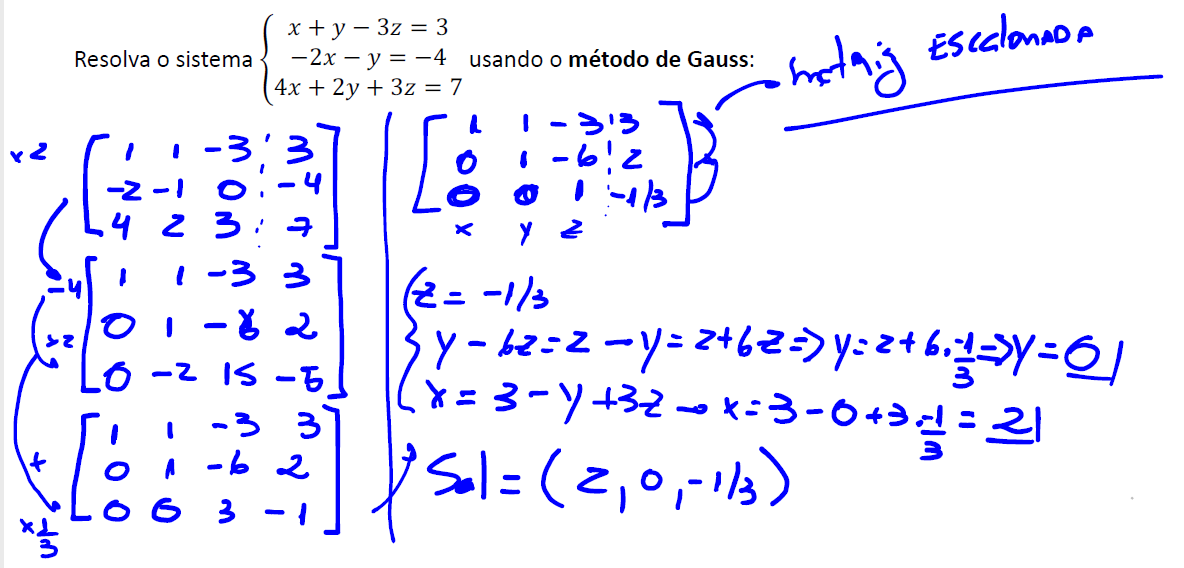 Resolva o sistema { x + y − 3z = 3
−2x − y = −4
4x + 2y + 3z = 7 usando o método de Gauss:
matriz ESCALONADA
x2
1 1 -3 3
-2 -1 0 -4
4 2 3 7
-4
1 1 -3 3
x2
0 1 -6 2
0 -2 15 -5
1 1 -3 3
+
0 1 -6 2
0 0 3 -1
x 1/3
1 1 -3 3
0 1 -6 2
0 0 1 -1/3
x y z
z = -1/3
y - 6z = 2 → y = 2+6z => y = 2+6.-1/3 => y = 0
x = 3 - y + 3z → x = 3 - 0 + 3.-1/3 = 2
Sol = (2, 0, -1/3)